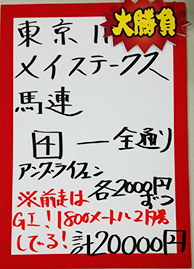 大勝負
東京 11
メイステークス
馬連
ー全通り
アングライフェン
各2000円ずつ
※前走は
GⅠ!1800メートル2勝
してる!
計20000円